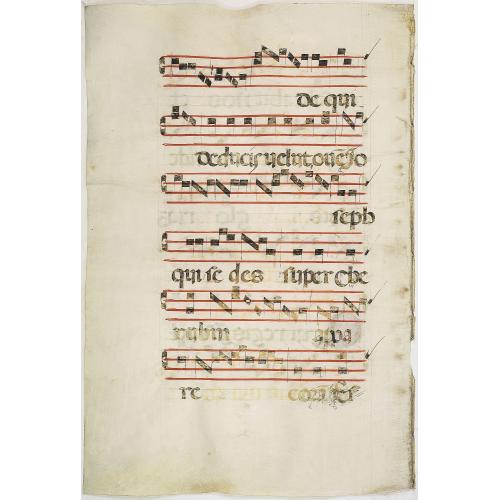 de qui
deducis uelut oue Jo
seph
qui se des super che
rubin apa
re cora